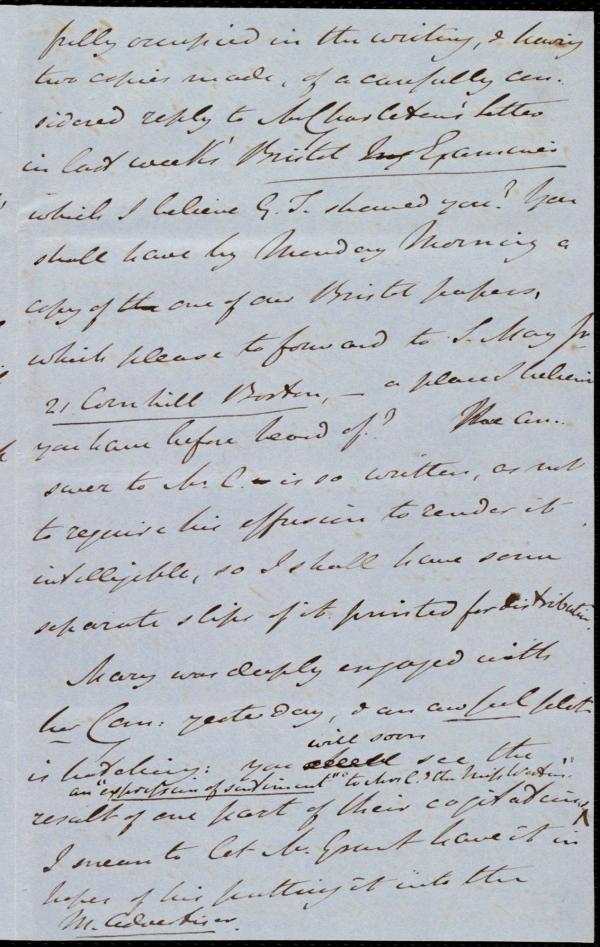 fully occupied in the writing, & having
two copies made, of a carefully con-
sidered reply to Mr Charleton's letter
in last week's Bristol Examiner
which I believe G. T. shewed you? You
shall have by Monday Morning a
copy of one of our Bristol papers,
which please to forward to S. May Jr
21 Cornhill Boston, — a place I believe
you have before heard of? The an-
swer to Mr. C. is so written, as not
to require his effusion to render it
intelligible, so I shall have some
separate slips of it printed for distribution.
Mary was deeply engaged with
her Com: yesterday, & an awful plot
is hatching: you will soon see the
result of one part of their cogitations
an "expression of sentiment" to Mrs C. & the Miss Westons"
I mean to let Mr Grant have it in
hopes of his putting it into the
M. Advertiser.